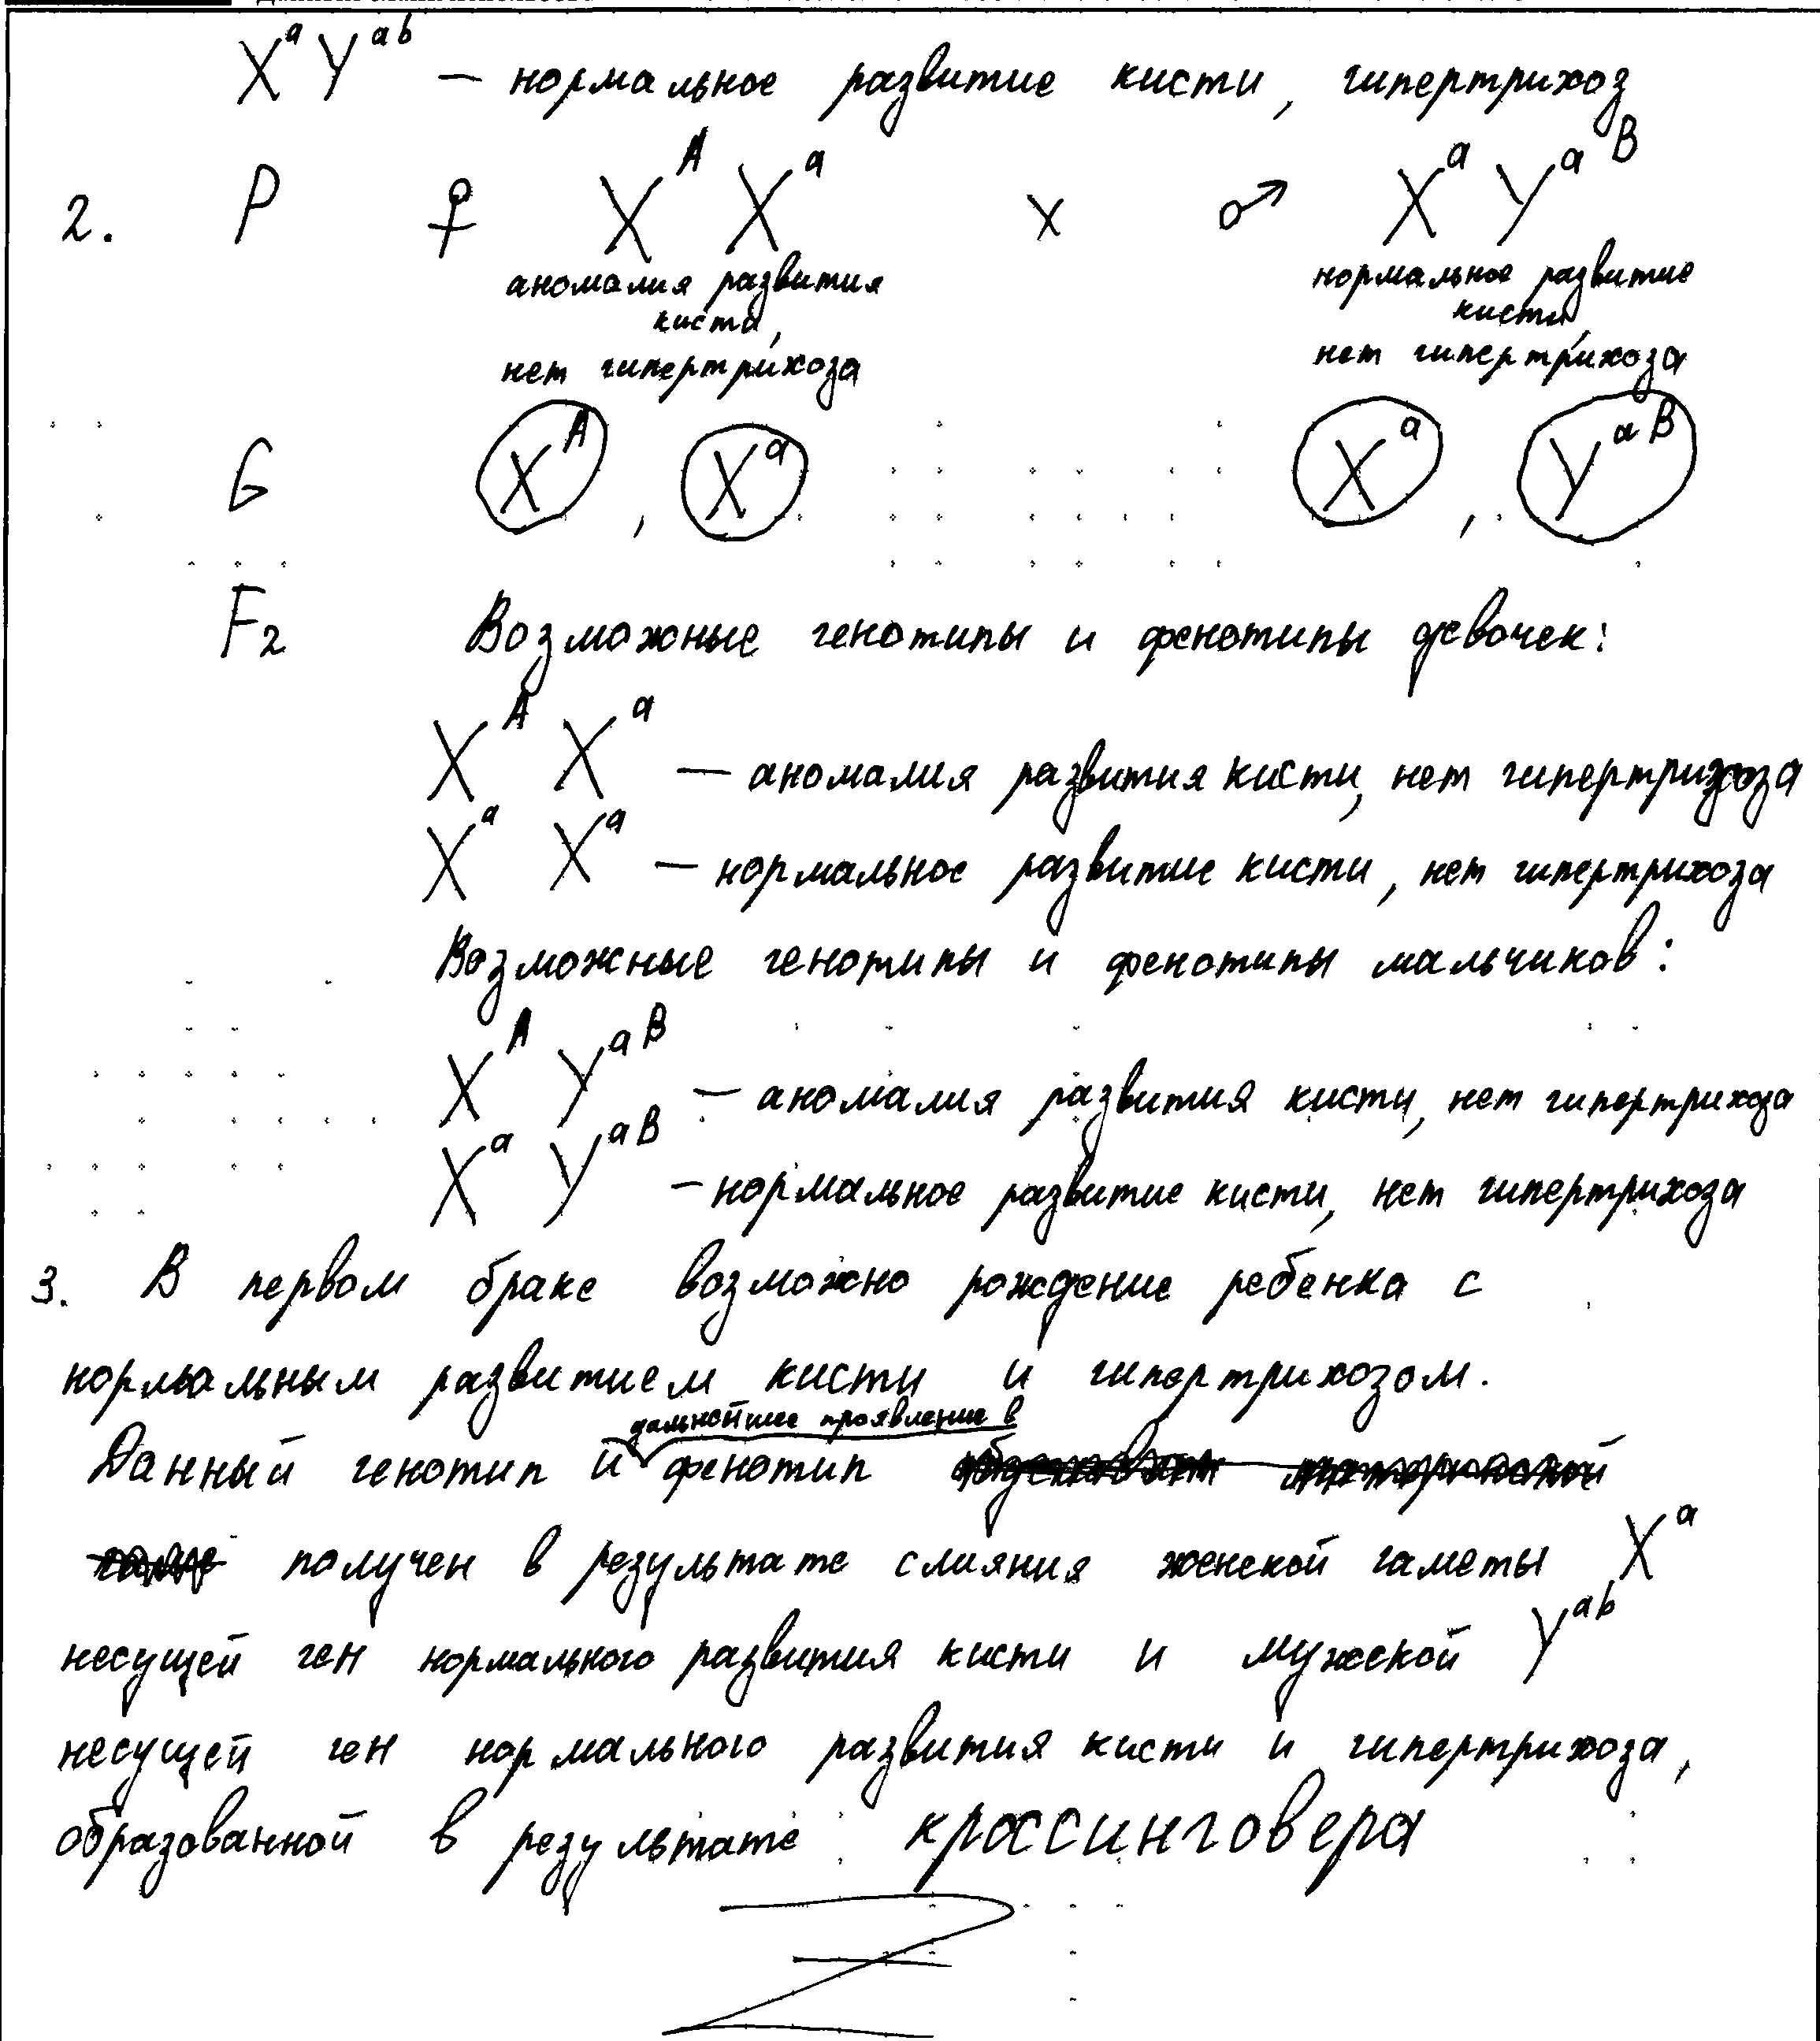 XᵃYᵃᵇ – нормальное развитие кисти, гипертрихоз
2. P ♀ XᴬXᵃ x ♂ XᵃYᵃᴮ
аномалия развития нормальное развитие
кисти, кисти
нет гипертрихоза нет гипертрихоза
G Xᴬ, Xᵃ Xᵃ, Yᵃᴮ
F₂ Возможные генотипы и фенотипы девочек:
XᴬXᵃ – аномалия развития кисти, нет гипертрихоза
XᵃXᵃ – нормальное развитие кисти, нет гипертрихоза
Возможные генотипы и фенотипы мальчиков:
XᴬYᵃᴮ – аномалия развития кисти, нет гипертрихоза
XᵃYᵃᴮ – нормальное развитие кисти, нет гипертрихоза
3. В первом браке возможно рождение ребенка с
нормальным развитием кисти и гипертрихозом.
дальнейшее проявление в
Данный генотип и фенотип
получен в результате слияния женской гаметы Xᵃ
несущей ген нормального развития кисти и мужской Yᵃᵇ
несущей ген нормального развития кисти и гипертрихоза,
образованной в результате кроссинговера